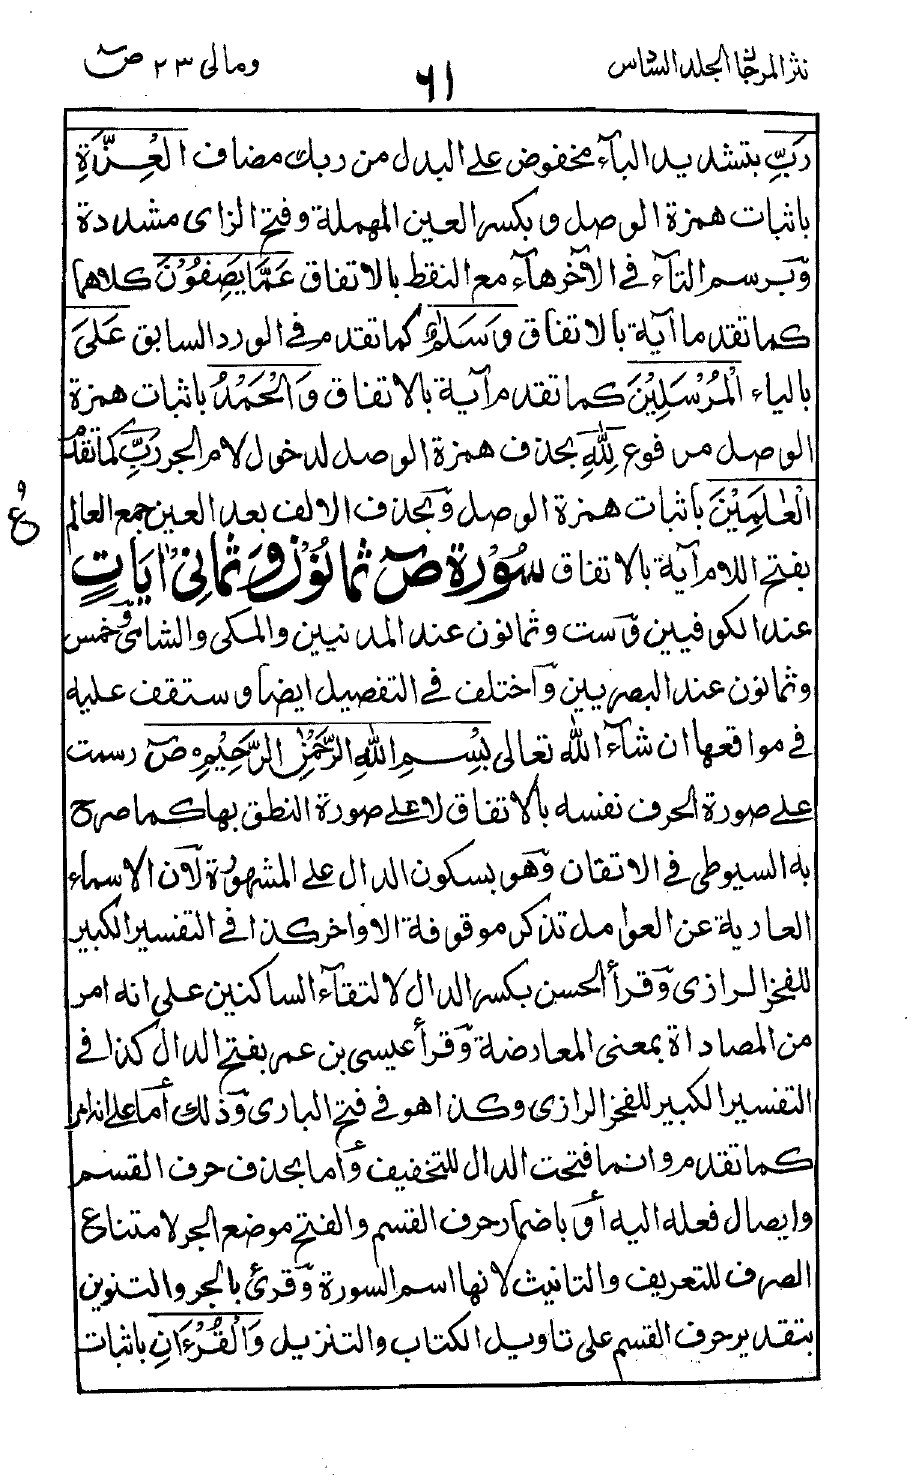 نثر المرجان الجلد السادس
٦١
ومالى ٢٣ صٓ
رَبِّ بتشديد البآء مخفوض على البدل من ربك مضاف الْعِزَّةِ
باثبات همزة الوصل وبكسر العين المهملة وفتح الزاى مشددة
وَبرسم التآء فى الآخر هآء مع النقط بالاتفاق عَمَّا يَصِفُوْنَ كلاهما
كما تقدما آية بالاتفاق وَسَلٰمٌ كما تقدم فى الورد السابق عَلَى
بالياء الْمُرْسَلِيْنَ كما تقدم آية بالاتفاق وَالْحَمْدُ باثبات همزة
الوصل مرفوع لِلّٰهِ بحذف همزة الوصل لدخول لام الجر رَبِّ كما تقدم
الْعٰلَمِيْنَ باثبات همزة الوصل وَبحذف الالف بعد العين جمع العالم
بفتح اللام آية بالاتفاق سُوْرَة صٓ ثمانُوْن وَثمانِىْ اٰيَاتٍ
عند الكوفيين وَست وثمانون عند المدنيين والمكى والشامى وَخمس
وثمانون عند البصريين وَاختلف فى التفصيل ايضا وستقف عليه
فى مواقعها ان شآء الله تعالى بِسْمِ اللهِ الرَّحْمٰنِ الرَّحِيْمِ صٓ رسمت
على صورة الحرف نفسه بالاتفاق لا على صورة النطق بها كما صرح
به السيوطى فى الاتقان وَهو بسكون الدال على المشهورة لآن الاسماء
العارية عن العوامل تذكر موقوفة الاواخر كذا فى التفسير الكبير
للفخر الرازى وَقرأ الحسن بكسر الدال لالتقآء الساكنين على انه امر
من المصاداة بمعنى المعارضة وَقرأ عيسى بن عمر بفتح الدال كذا فى
التفسير الكبير للفخر الرازى وكذا هو فى فتح البارى وَذلك أما على انه امر
كما تقدم وانما فتحت الدال للتخفيف وَاما بحذف حرف القسم
وايصال فعله اليه أو باضمار حرف القسم والفتح موضع الجر لامتناع
الصرف للتعريف والتانيث لانها اسم السورة وَقرئ بالجر والتنوين
بتقدير حرف القسم على تاويل الكتاب والتنزيل وَالْقُرْءَانِ باثبات